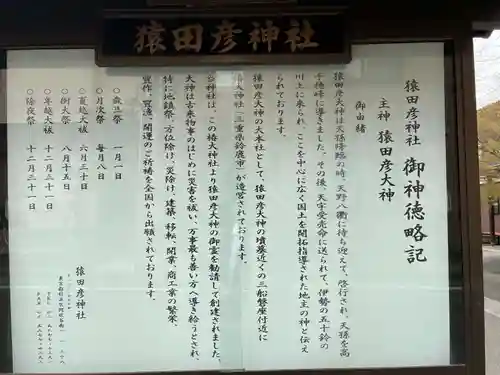 猿田彦神社
猿田彦神社 御神徳略記
主神 猿田彦大神
御由緒
猿田彦大神は天孫降臨の時、天野八衢に待ち迎えて、啓行され、天孫を高
千穂峰に導きました。その後、天宇受売命に送られて、伊勢の五十鈴の
川上に来られ、ここを中心に広く国土を開拓指導された地主の神と伝え
られております。
猿田彦大神の大本社として、猿田彦大神の墳墓近くの三船磐座付近に
大神社(三重県鈴鹿市)が造営されております。
当神社は、この椿大神社より猿田彦大神の御霊を勧請して創建されました。
大神は古来物事のはじめに災害を祓い、万事最も善い方へ導き給うとされ、
特に地鎮祭、方位除け、災除け、建築、移転、開業、商工業の繁栄、
豊作、豊漁、開運のご祈祷を全国から出職されております。
○歳旦祭 一月一日
○月次祭 毎月八日
○夏越大祓 六月三十日
○例大祭 八月十五日
○年越大祓 十二月三十一日
○除夜祭 十二月三十一日
猿田彦神社